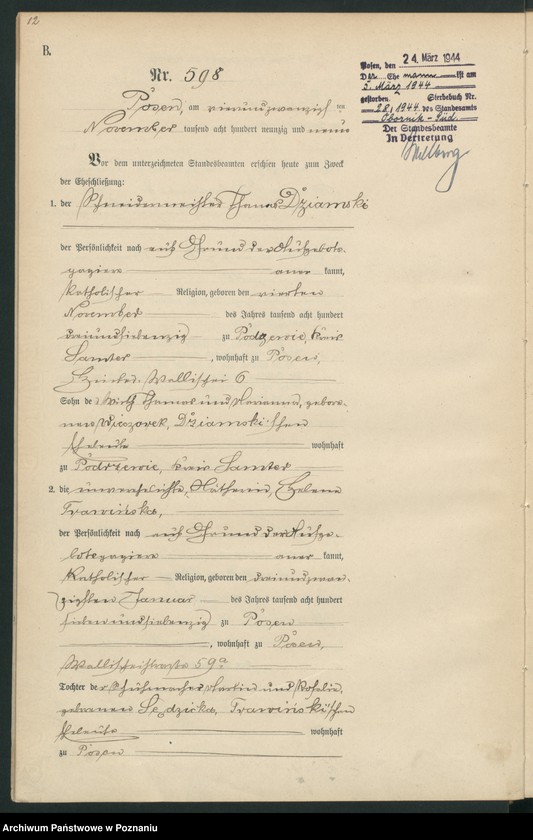 12
B.
Nr. 598
Posen, am vierundzwanzigsten
November tausend acht hundert neunzig und neun
Vor dem unterzeichneten Standesbeamten erschien heute zum Zweck
der Eheschließung:
1. der Schneidermeister Thomas Dziamski
der Persönlichkeit nach auf Grund der Aufgebots-
papiere anerkannt,
katholischer Religion, geboren den vierten
November des Jahres tausend acht hundert
dreiundsiebenzig zu Podrzewie, Kreis
Samter, wohnhaft zu Posen,
Wallischei 6
Sohn des Wirth Thomas und Marianna, gebore-
nen Wieczorek, Dziamski'schen
Eheleute wohnhaft
zu Podrzewie, Kreis Samter
2. die unverehelichte Nätherin, Helene
Trawińska,
der Persönlichkeit nach auf Grund der Aufge-
botspapiere anerkannt,
katholischer Religion, geboren den dreiundzwan-
zigsten Januar des Jahres tausend acht hundert
siebenundsiebenzig zu Posen
, wohnhaft zu Posen,
Wallischeistraße 59a
Tochter der Schuhmacher Martin und Rosalie,
geborenen Sędzicka, Trawiński'schen
Eheleute wohnhaft
zu Posen
Posen, den 24. März 1944
Der Ehemann ist am
5. März 1944
gestorben. Sterbebuch Nr.
28/1944 des Standesamts
Obornik-Süd.
Der Standesbeamte
In Vertretung
Archiwum Państwowe w Poznaniu